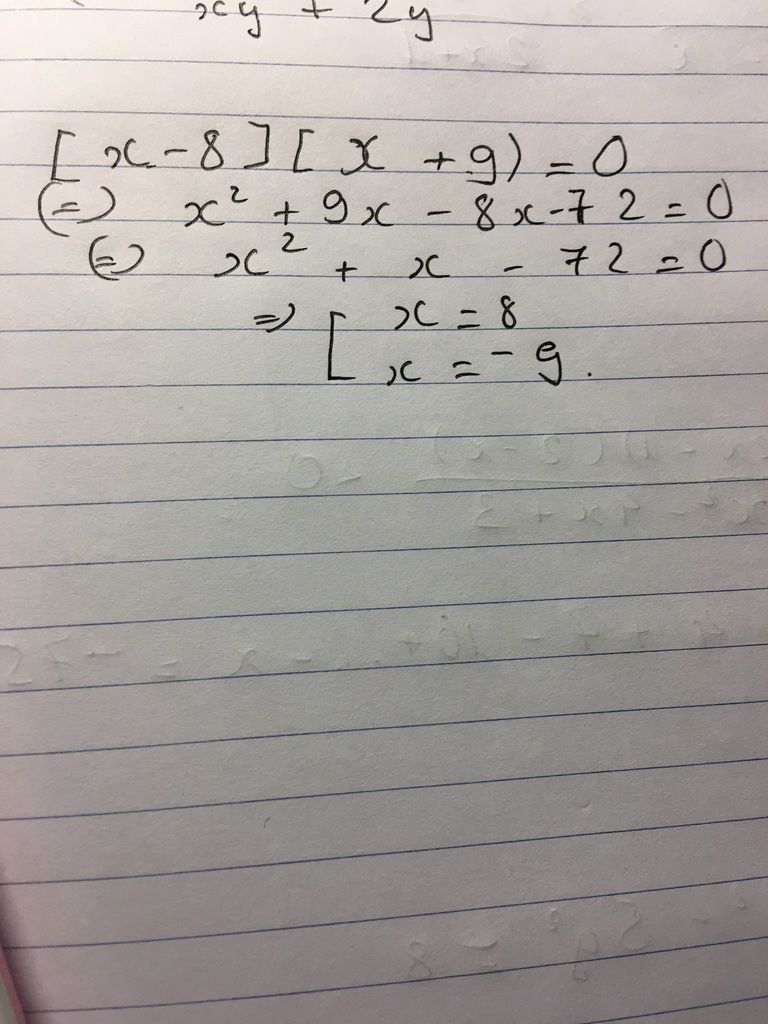 xy + 2y
[x-8][x +9)=0
(=) x² + 9x - 8x-72=0
(=) x² + x - 72=0
=> [ x = 8
x = -9.